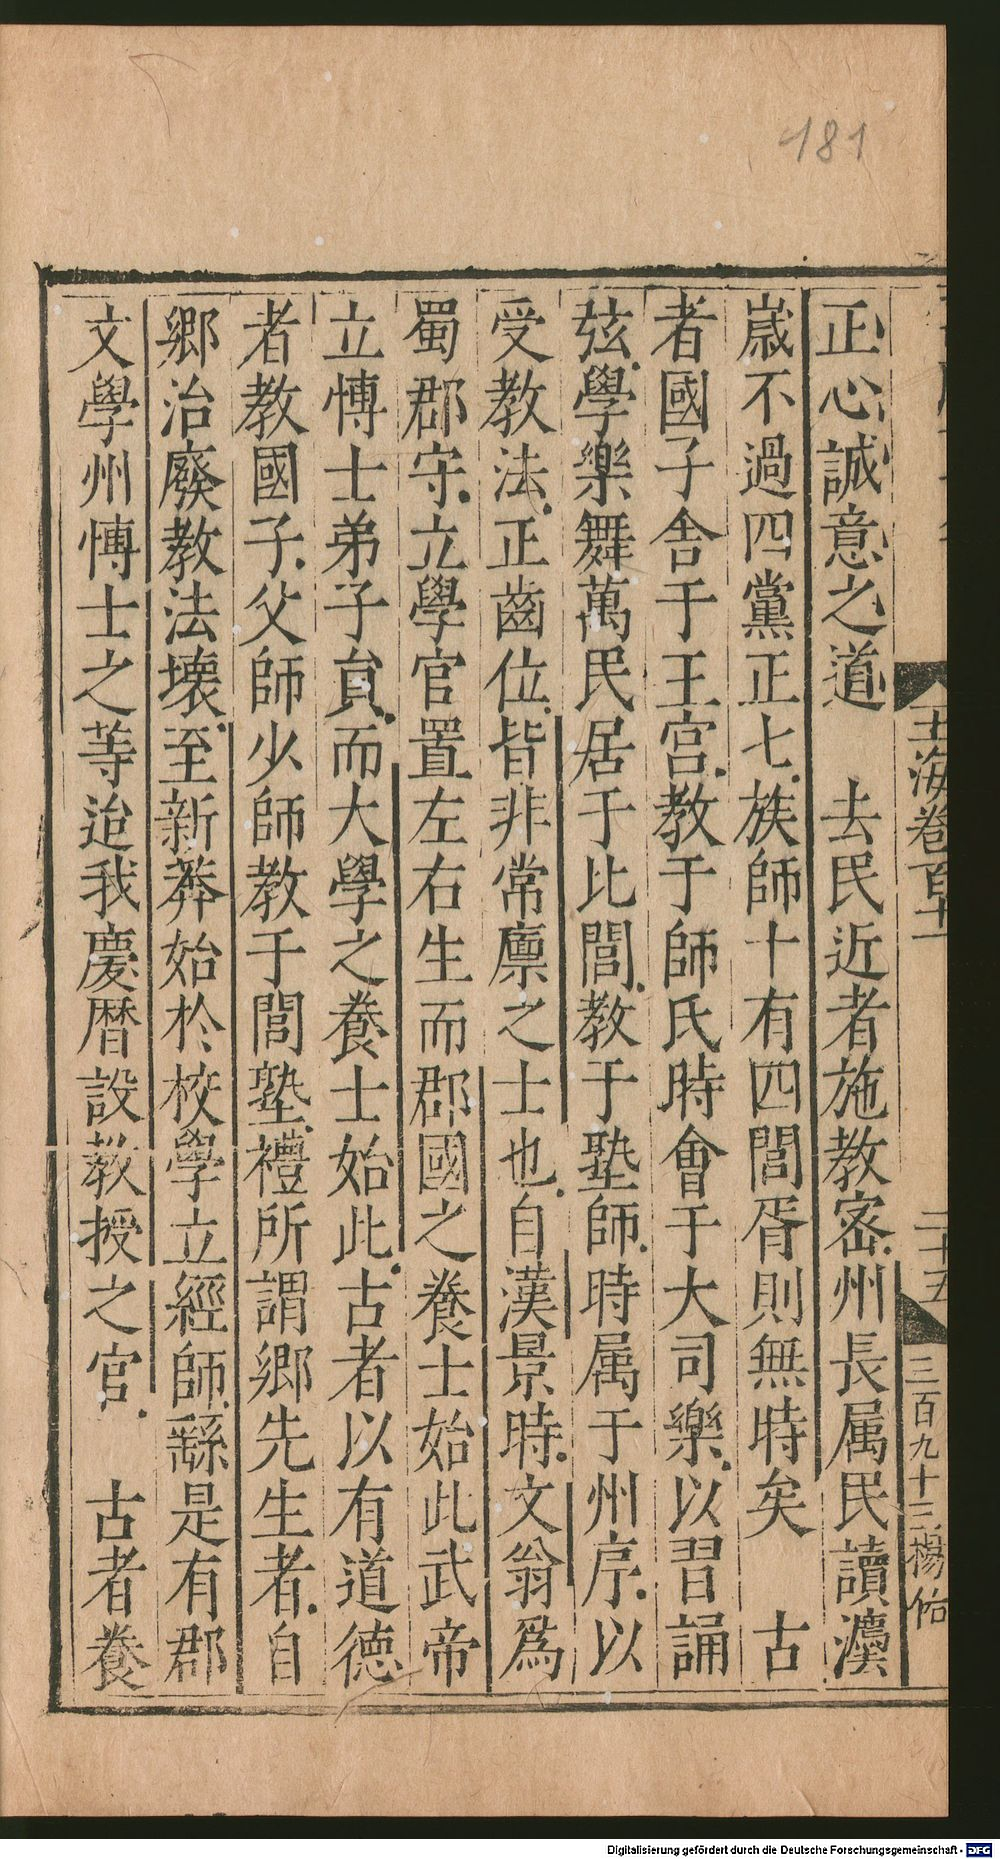 181
玉海卷百十一
二十五
三百九十三 楊
正心誠意之道 去民近者施教密州長属民讀灋
嵗不過四黨正七族師十有四閭胥則無時矣 古
者國子舎于王宫教于師氏時會于大司樂以習誦
弦學樂舞萬民居于比閭教于塾師時属于州序以
受教法正齒位皆非常廪之士也自漢景時文翁爲
蜀郡守立學官置左右生而郡國之養士始此武帝
立博士弟子負而大學之養士始此古者以有道德
者教國子父師少師教于閭塾禮所謂鄉先生者自
鄉治廢教法壊至新莽始於校學立經師繇是有郡
文學州博士之等迨我慶暦設教授之官 古者養
Digitalisierung gefördert durch die Deutsche Forschungsgemeinschaft - DFG